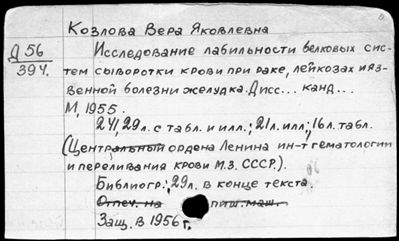 Козлова Вера Яковлевна
Д 56
394.
Исследование лабильности белковых сис-
тем сыворотки крови при раке, лейкозах и яз-
венной болезни желудка. Дисс... канд...
М, 1955.
241, 29 л. с табл. и илл.; 21 л. илл; 16 л. табл.
(Центральный ордена Ленина ин-т гематологии
и переливания крови М.З. СССР.).
Библиогр.: 29 л. в конце текста.
Отпеч. на пиш. маш.
Защ. в 1956 г.